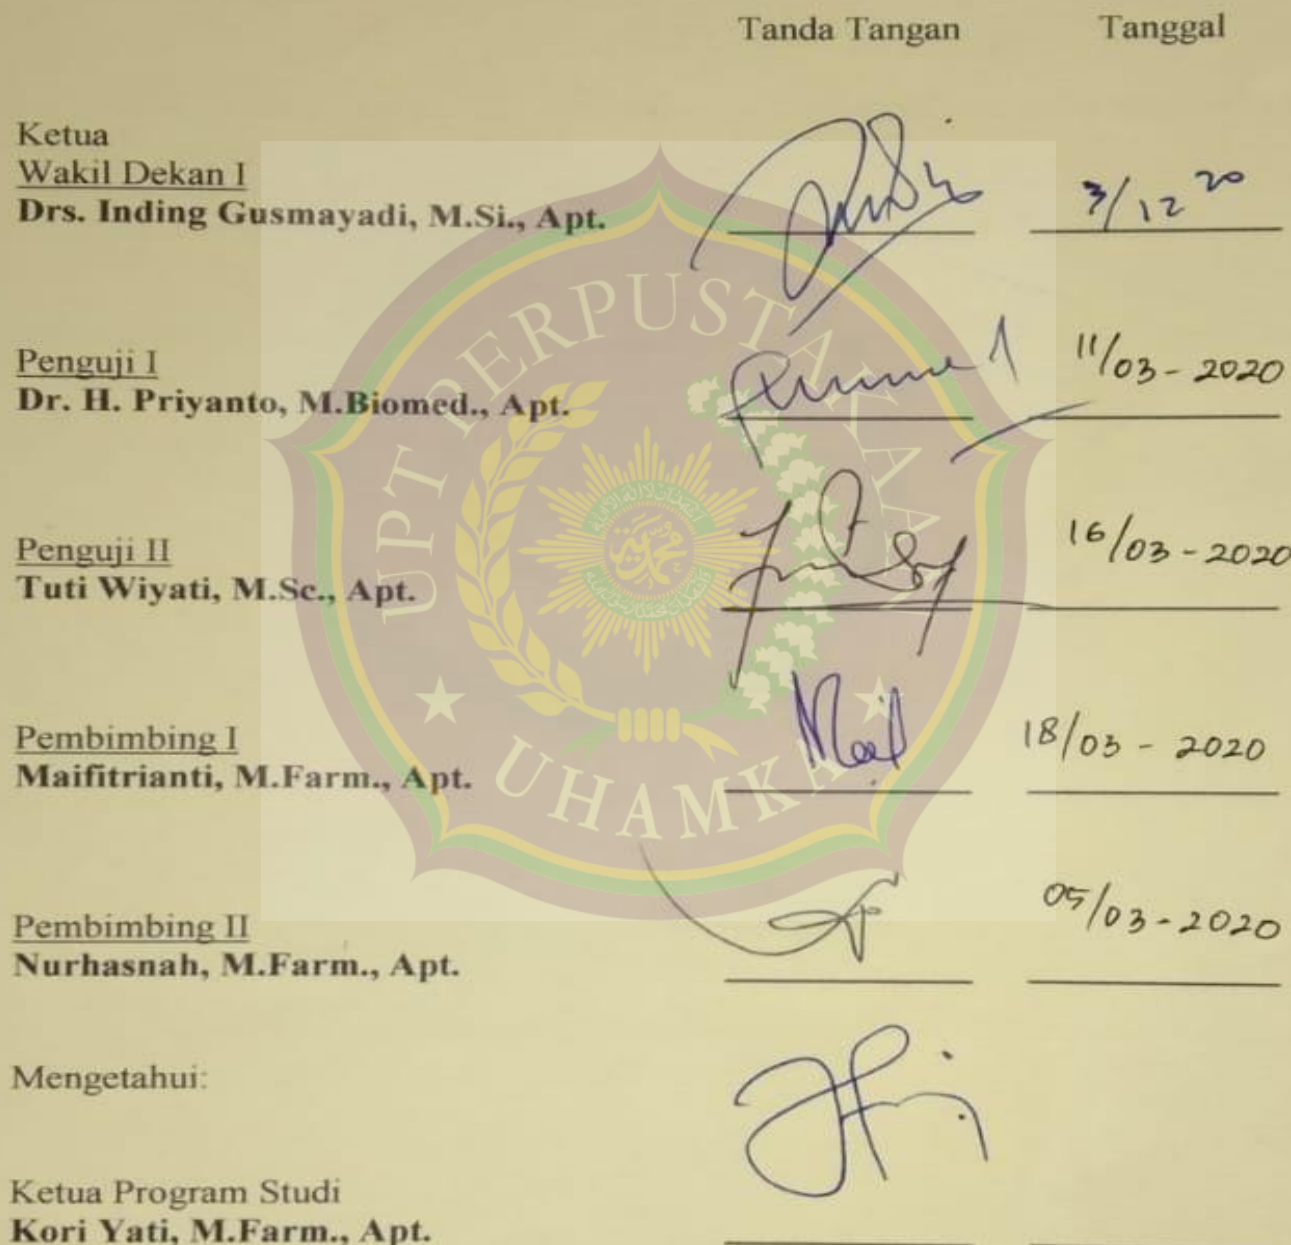 Tanda Tangan Tanggal
Ketua
Wakil Dekan I
Drs. Inding Gusmayadi, M.Si., Apt. 3/12 20
Penguji I
Dr. H. Priyanto, M.Biomed., Apt. 11/03 - 2020
Penguji II
Tuti Wiyati, M.Sc., Apt. 16/03 - 2020
Pembimbing I
Maifitrianti, M.Farm., Apt. 18/03 - 2020
Pembimbing II
Nurhasnah, M.Farm., Apt. 05/03 - 2020
Mengetahui:
Ketua Program Studi
Kori Yati, M.Farm., Apt.
UPT PERPUSTAKAAN
UHAMKA